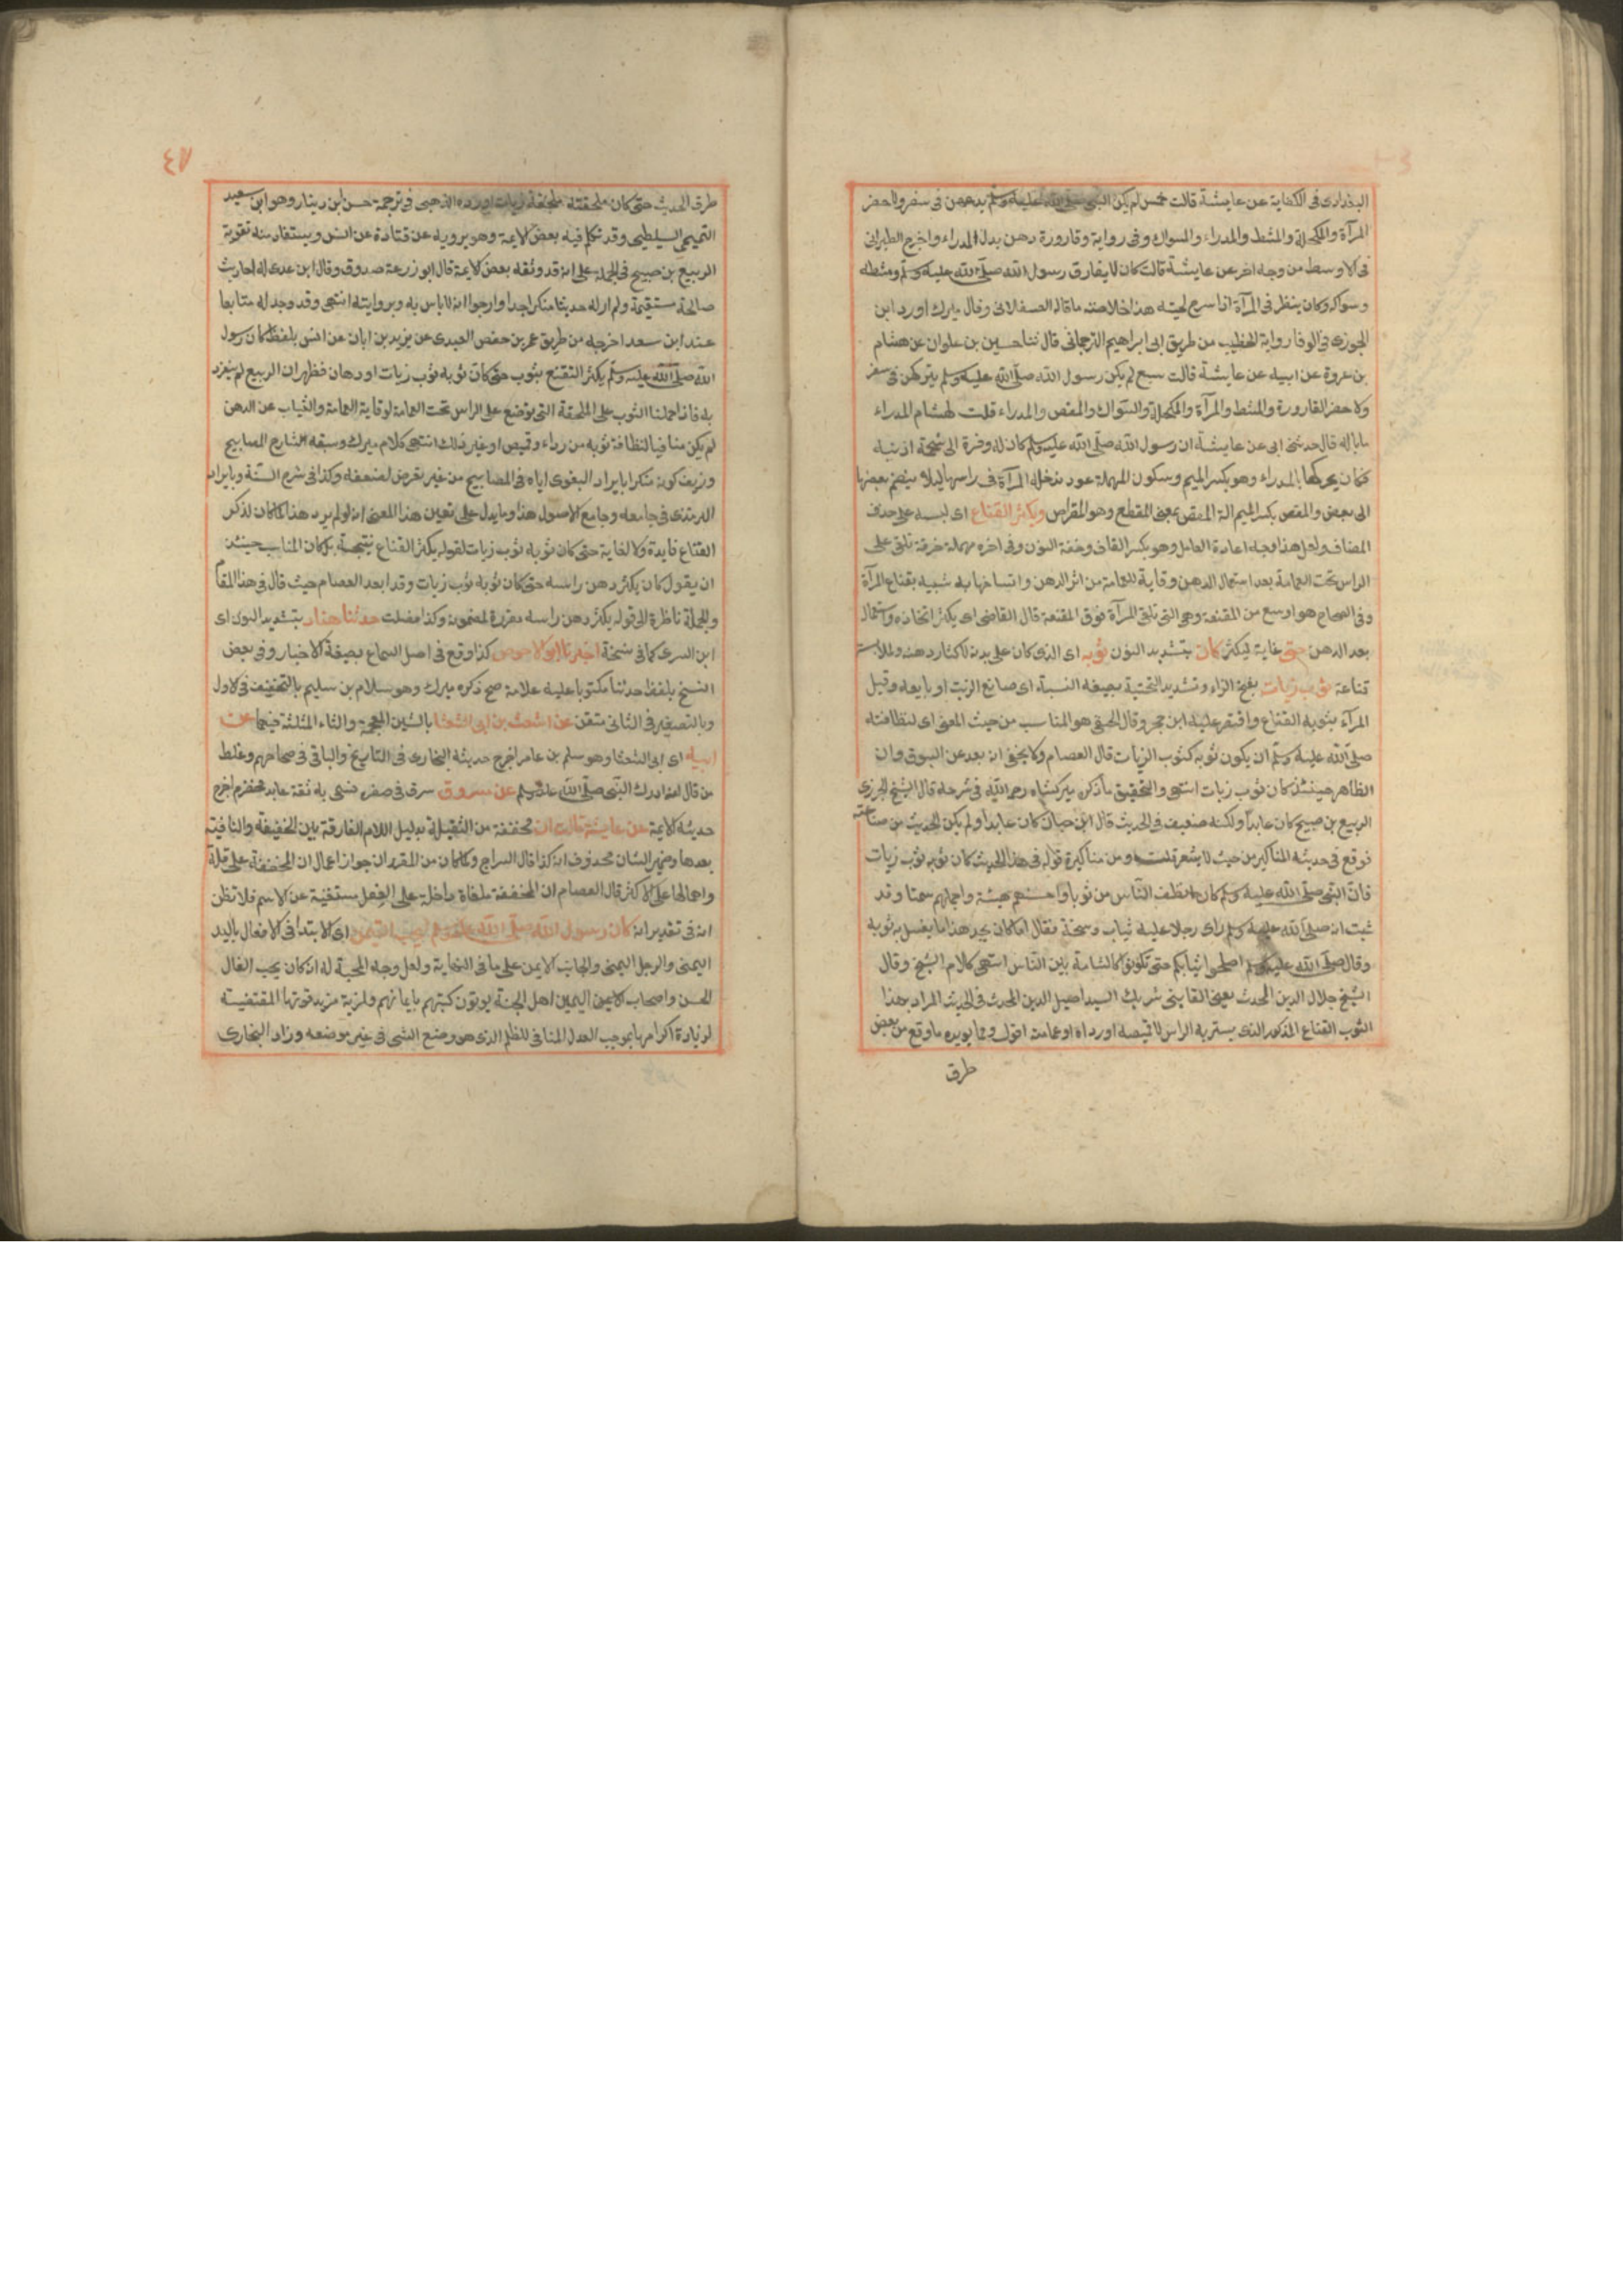 البغدادى فى الكفاية عن عايشة قالت خمس لم يكن النبى صلى الله عليه وسلم يدعهن فى سفر ولا حضر
المرآة والمكحلة والمشط والمدراء والسواك وفى رواية وقارورة دهن بدل المدراء واخرج الطبرانى
فى الاوسط من وجه اخر عن عايشة قالت كان لا يفارق رسول الله صلى الله عليه وسلم ومشطه
وسواكه وكان ينظر فى المرآة اذا سرح لحيته هذا خلاصة ما قاله العسقلانى وقال ميرك اورد ابن
الجوزى فى الوفا رواية الخطيب من طريق ابى ابراهيم الترجمانى قال ثنا حسين بن علوان عن هشام
بن عروة عن ابيه عن عايشة قالت سبع لم يكن رسول الله صلى الله عليه وسلم يتركهن فى سفر
ولا حضر القارورة والمشط والمرآة والمكحلة والسواك والمقص والمدراء قلت لهشام المدراء
ما باله قال حدثنى ابى عن عايشة ان رسول الله صلى الله عليه وسلم كان له وفرة الى شحمة اذنيه
فكان يحركها بالمدراء وهو بكسر الميم وسكون المهملة عود تدخله المرآة فى راسها ليلا ينضم بعضها
الى بعض والمقص بكسر الميم الة المقص بمعنى المقطع وهو المقراض ويكثر القناع اى لبسه على حذف
المضاف ولعل هذا وجه اعادة العامل وهو بكسر القاف وخفة النون وفى اخره مهملة خرقة تلقى على
الراس تحت العمامة بعد استعمال الدهن وقاية للعمامة من اثر الدهن واتساخها به شبيه بقناع المرآة
وفى الصحاح هو اوسع من المقنعة وهى التى تلقى المرآة فوق المقنعة قال القاضى اى يكثر اتخاذه واستعماله
بعد الدهن حتى غاية ليكثر كان بتشديد النون ثوبه اى الذى كان على بدنه لاكثار دهنه
قناعة ثوب زيات بفتح الزاء وتشديد التحتية بصيغة النسبة اى صانع الزيت او بايعه وقيل
المرآد بثوبه القناع واقتصر عليه ابن حجر وقال الحنفى هو المناسب من حيث المعنى اى لنظافته
صلى الله عليه وسلم ان يكون ثوبه كثوب الزيات قال العصام ولا يخفى انه بعد عن السوق وان
الظاهر حينئذ كان ثوب زيات انتهى والتحقيق ما ذكره ميركشاه رحمه الله فى شرحه قال الشيخ الجزرى
الربيع بن صبيح كان عابدا ولكنه ضعيف فى الحديث قال ابن حبان كان عابدا ولم يكن الحديث من صناعته
فوقع فى حديثه المناكير من حيث لا يشعر قلت ومن مناكيره قوله فى هذا الحديث كان ثوبه ثوب زيات
فان النبى صلى الله عليه وسلم كان انظف الناس ثوبا واحسنهم هيئة واجملهم سمتا وقد
ثبت انه صلى الله عليه وسلم راى رجلا عليه ثياب وسخة فقال اما كان يجد هذا ما يغسل به ثوبه
وقال صلى الله عليه وسلم اصلحوا ثيابكم حتى تكونوا كالشامة بين الناس انتهى كلام الشيخ وقال
الشيخ جلال الدين المحدث يعنى القاينى شريك السيد اصيل الدين المحدث فى الحديث المراد بهذا
الثوب القناع المذكور الذى يستر به الراس لا قميصه او رداه او عمامته اقول ومما يويده ما وقع من بعض
طرق
٤٧
طرق الحديث حتى كان ملحفته ملحفة زيات اورده الذهبى فى ترجمة حسن ابن دينار وهو ابن سعيد
التميمى السليطى وقد تكلم فيه بعض الايمة وهو يرويه عن قتادة عن انس ويستفاد منه تقوية
الربيع بن صبيح فى الجملة على انه قد وثقه بعض الايمة قال ابو زرعة صدوق وقال ابن عدى له احاديث
صالحة مستقيمة ولم ار له حديثا منكرا جدا وارجوا انه لا باس به وبروايته انتهى وقد وجد له متابعا
عند ابن سعد اخرجه من طريق عمر بن حفص العبدى عن يزيد بن ابان عن انس بلفظ كان رسول
الله صلى الله عليه وسلم يكثر التقنع بثوب حتى كان ثوبه ثوب زيات او دهان فظهر ان الربيع لم ينفرد
به فاذا حملنا الثوب على الملحفة التى توضع على الراس تحت العمامة لوقاية العمامة والثياب عن الدهن
لم يكن منافيا لنظافة ثوبه من رداء وقميص او غير ذلك انتهى كلام ميرك وسبقه الشارح المصابيح
وزيف كونه منكرا بايراد البغوى اياه فى المصابيح من غير تعرض لضعفه وكذا فى شرح السنة وبايراد
الترمذى فى جامعه وجامع الاصول هذا ومما يدل على تعين هذا المعنى انه لو لم يرد هذا لما كان لذكر
القناع فايدة ولا لغاية حتى كان ثوبه ثوب زيات لقوله يكثر القناع نتيجة بل كان المناسب حينئذ
ان يقول كان يكثر دهن راسه حتى كان ثوبه ثوب زيات وقد ابعد العصام حيث قال فى هذا المقام
والجملة ناظرة الى قوله يكثر دهن راسه مقررة لمضمونه وكذا فصلت حدثنا هناد بتشديد النون اى
ابن السرى كما فى نسخة اخبرنا ابو الاحوص كذا وقع فى اصل السماع بصيغة الاخبار وفى بعض
النسخ بلفظ حدثنا مكتوبا عليه علامة صح ذكره ميرك وهو سلام بن سليم بالتخفيف فى الاول
وبالتصغير فى الثانى متقن عن اشعث بن ابى الشعثا بالشين المعجمة والثاء المثلثة فيهما عن
ابيه اى ابى الشعثا وهو سليم بن عامر اخرج حديثه البخارى فى التاريخ والباقى فى صحاحهم وغلط
من قال انه ادرك النبى صلى الله عليه وسلم عن مسروق سرق فى صغره فسمى به ثقة عابد مخضرم اخرج
حديثه الايمة عن عايشة قالت ان مخففة من الثقيلة بدليل اللام الفارقة بين الخفيفة والنافية
بعدها وضمير الشان محذوف انه كذا قال السراج ولما كان من المقرر ان جواز اعمال ان المخففة على قلة
واهمالها على الاكثر قال العصام ان المخففة ملغاة داخلة على الفعل مستغنية عن الاسم فلا تظن
انه فى تقدير انه كان رسول الله صلى الله عليه وسلم ليحب التيمن اى الابتدا فى الافعال باليد
اليمنى والرجل اليمنى والجانب الايمن على ما فى النهاية ولعل وجه المحبة له انه كان يحب الفال
الحسن واصحاب الايمن اليمين اهل الجنة يوتون كتبهم بايمانهم ولمزية مزيد قوتها المقتضية
لزيادة اكرامها بموجب العدل المنافى للظلم الذى هو وضع الشى فى غير موضعه وزاد البخارى